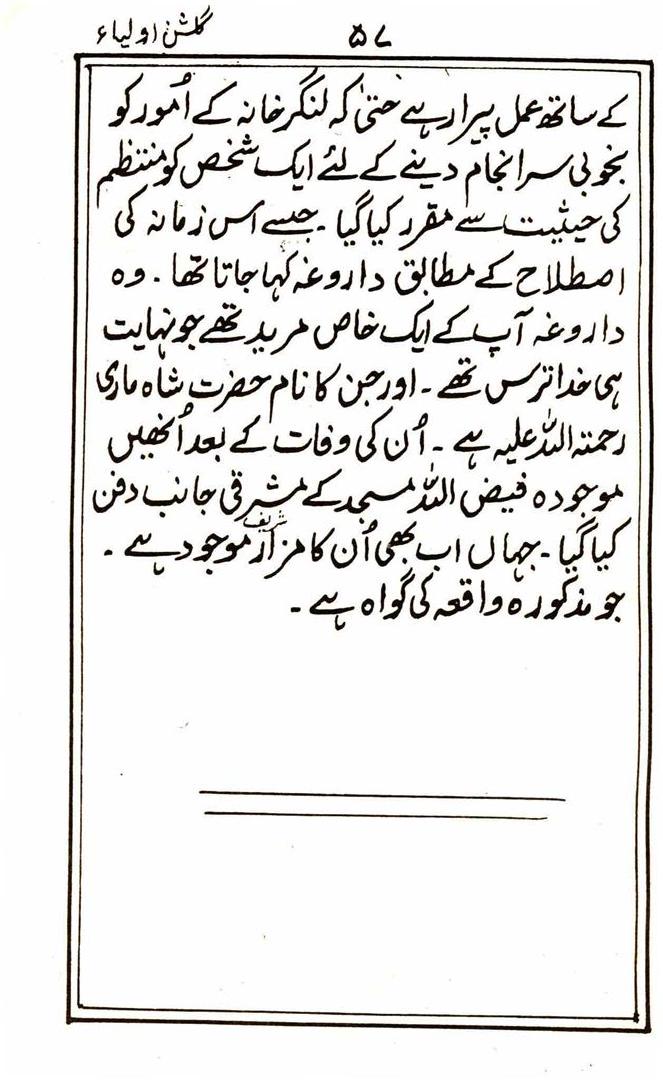 گلشن اولیاء ۵۷
کے ساتھ عمل پیرا رہے حتیٰ کہ لنگر خانہ کے اُمور کو
بخوبی سر انجام دینے کے لئے ایک شخص کو منتظم
کی حیثیت سے مقرر کیا گیا ۔ جسے اس زمانہ کی
اصطلاح کے مطابق داروغہ کہا جاتا تھا ۔ وہ
داروغہ آپ کے ایک خاص مرید تھے جو نہایت
ہی خدا ترس تھے ۔ اور جن کا نام حضرت شاہ ماری
رحمتہ اللہ علیہ ہے ۔ اُن کی وفات کے بعد اُنھیں
موجودہ فیض اللہ مسجد کے مشرقی جانب دفن
کیا گیا ۔ جہاں اب بھی اُن کا مزار شریف موجود ہے ۔
جو مذکورہ واقعہ کی گواہ ہے ۔